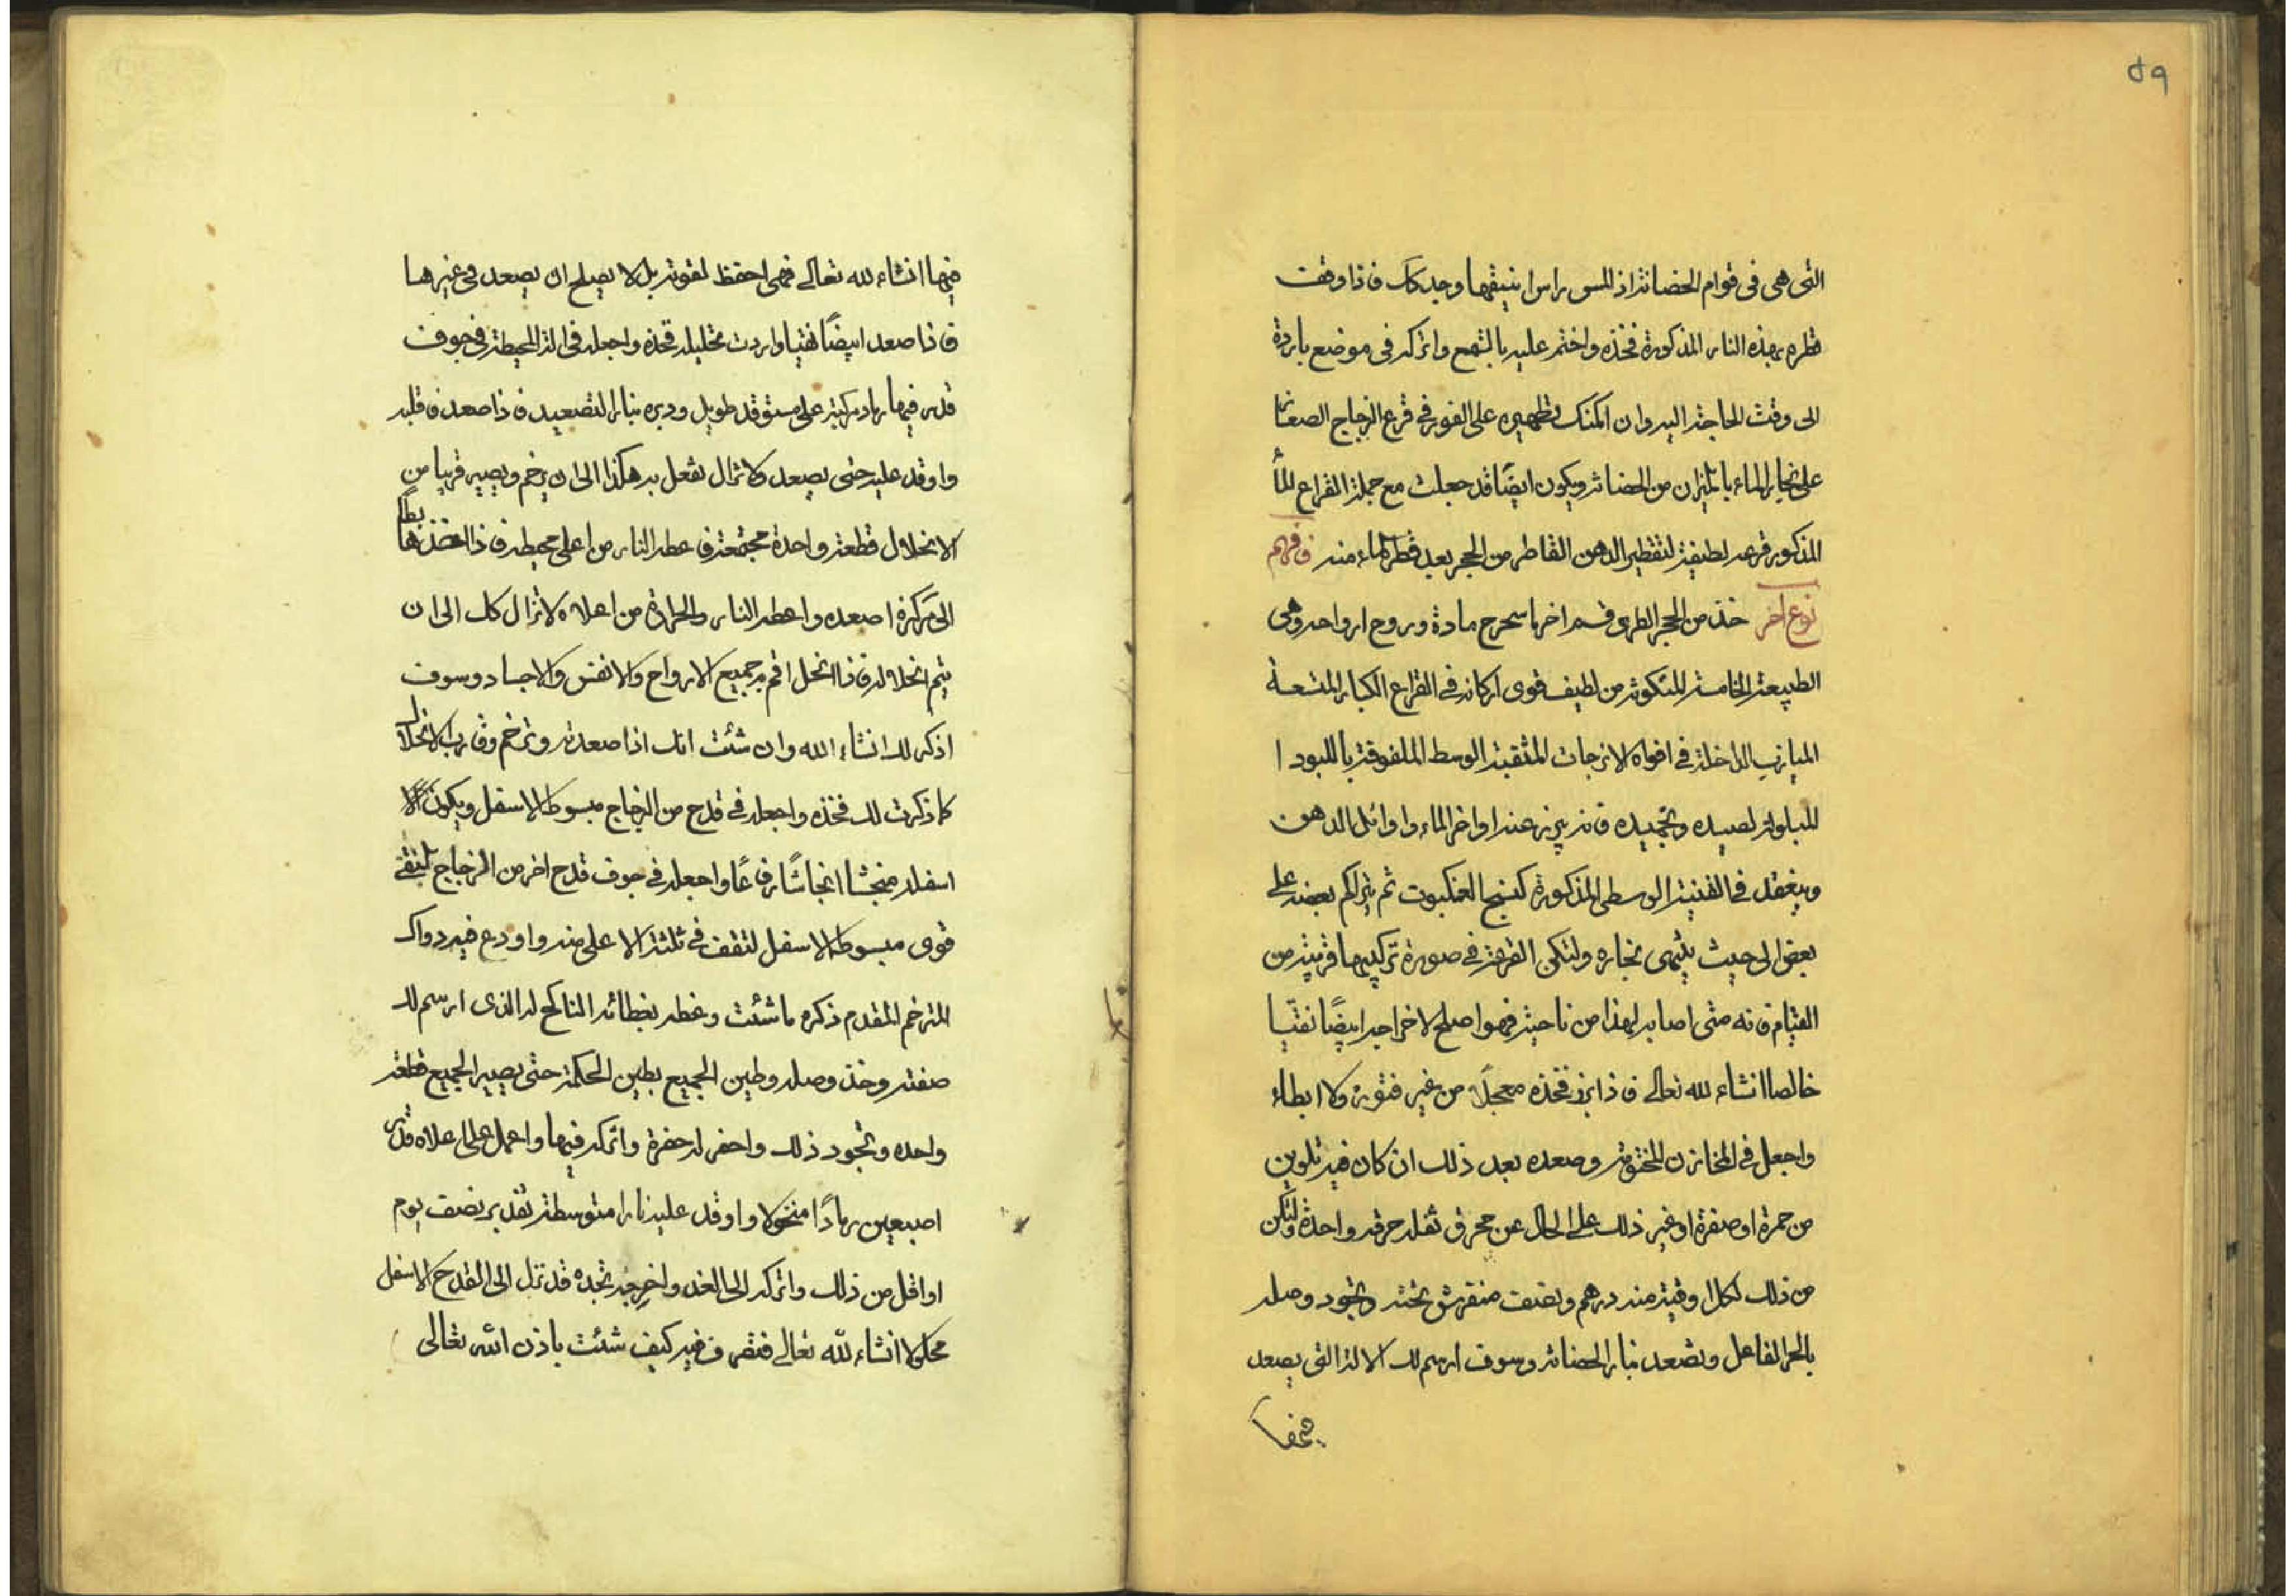 ٥٩
التى هى فى قوام الحضانة اذ المس راس انبيقها وجد كك فاذا وقفت
قطره بهذه النار المذكورة فخذه واختم عليه بالشمع واتركه فى موضع باردة
الى وقت الحاجة اليه وان امكنك تطهيره على الفور فى قرع الزجاج الصغار
على بخار الماء بالميزان من الحضانة ويكون ايضًا قد جعلت مع جملة القراع المأ
المذكور قرعه لطيفة لتقطير الدهن القاطر من الحجر بعد قطر الماء منه فافهم
نوع آخر خذ من الحجر الطرى قسم اخر ما سحرح مادة وروح ارواحه وهى
الطبيعة الخامسة المتكونة من لطيف قوى اركانه فى القراع الكبار المتسعة
الميازيب الداخلة فى افواه الاترجات المثقبة الوسط الملفوفة باللبود ا
المبلولة لصيده وتجميده فانه يبرز عند اواخر الماء واوائل الدهن
وينعقد فى القنينة الوسطى المذكورة كنسج العنكبوت ثم يتراكم بعضه على
بعض الى حيث ينتهى بخاره ولتكن القرعة فى صورة تركيبها قريبة من
القيام فانه متى اصابه لهذا من ناحية فهو اصلح لاخراجه ابيضًا نقيا
خالصا انشاء لله تعالى فاذا برز فخذه معجلًا من غير فتور ولا ابطاء
واجعل فى المخازن المختومة وصعده بعد ذلك ان كان فيه تلوين
من حمرة او صفرة او غير ذلك على الحال عن محرق ثفله حرقه واحدة ولتكن
من ذلك لكل اوقية منه درهم ونصف منفرش تحته وتجود وصله
بالحر الفاعل وتصعد بنار الحضانة وسوف ارسم لك الالة التى يصعد
فيها
فيها انشاء لله تعالى فهى احفظ لقوته بل لا يصلح ان يصعد فى غيرها
فاذا صعد ابيضًا نقيا واردت تحليله فخذه واجعله فى الة المحيطة فى جوف
قدر فيها رماد مركبة على مستوقد طويل ودبره بنار التصعيد فاذا صعد فاقلبه
واوقد عليه حتى يصعد ولا تزال تفعل به هكذا الى ان يرخم ويصير قريبا من
الانحلال قطعة واحدة مجتمعة فاعطه النار من اعلى محيطه فاذا انحذ هابطًا
الى مركزه اصعده واعطه النار والحرارة من اعلاه لا تزال كك الى ان
يتم انحلاله فاذا انحل اقم به جميع الارواح والانفس والاجساد وسوف
اذكر لك انشاء الله وان شئت انك اذا صعدته وترخم وقارب الانحلال
كما ذكرت لك فخذه واجعله فى قدح من الزجاج مبسوط الاسفل ويكون
اسفله منخشا انخاشًا رفاعًا واجعله فى جوف قدح اخر من الزجاج
قوى مبسوط الاسفل لتقف فى ثلثة الاعلى منه واودع فيه دواك
المترخم المقدم ذكره ما شئت وغطه بغطائه الناكح له الذى ارسم لك
صفته وخذ وصله وطين الجميع بطين الحكمة حتى يصير الجميع قطعة
واحده وتجود ذلك واحفر له حفرة واتركه فيها واعمل على اعلاه قدر
اصبعين رمادًا منخولا واوقد عليه نارا متوسطة تقدير نصف يوم
او اقل من ذلك واتركه الى الغد واخرجه تجده قد نزل الى القدح الاسفل
محلولا انشاء لله تعالى فتصرف فيه كيف شئت باذن الله تعالى